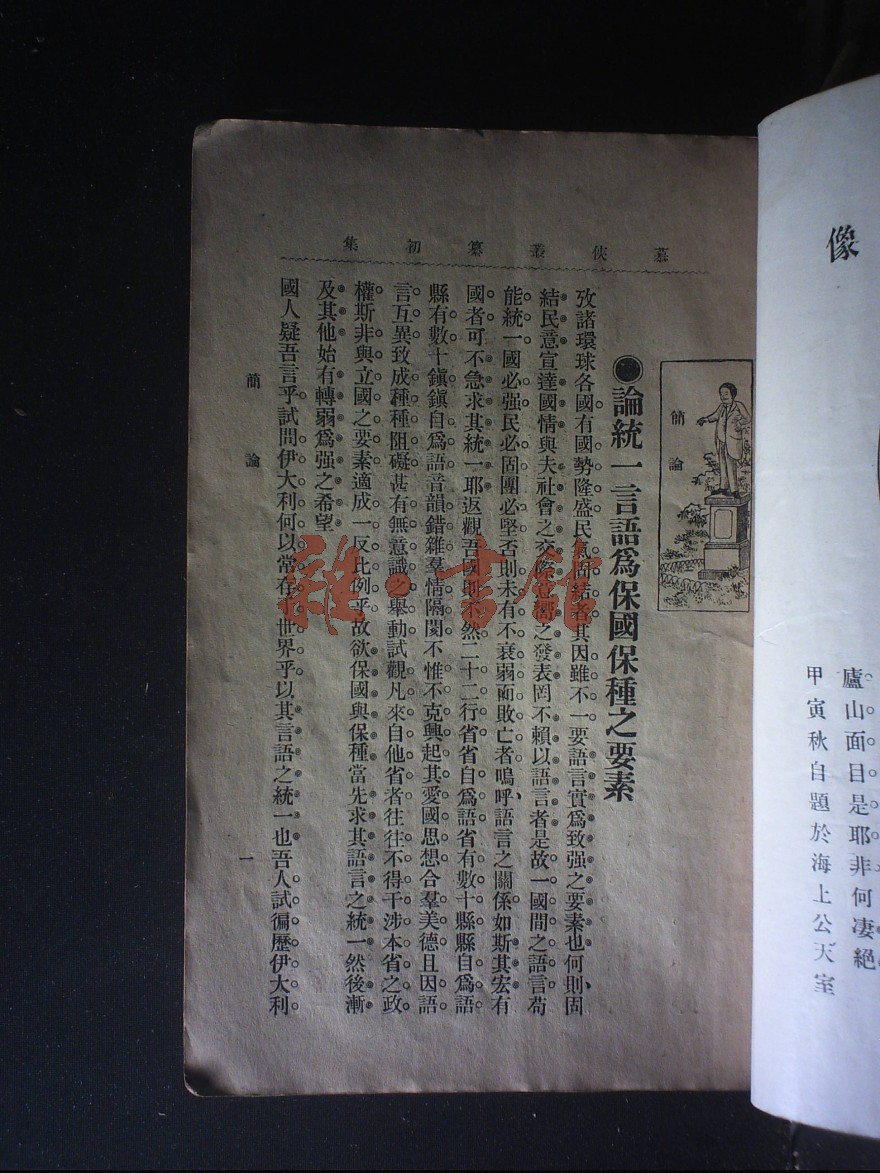 像
廬山面目是耶非何凄絕
甲寅秋自題於海上公天室
慕俠叢纂初集
簡論
論統一言語爲保國保種之要素
攷諸環球各國有國勢隆盛民氣固結者其因雖不一要語言實爲致强之要素也何則固
結民意宣達國情與夫社會之交際意嚮之發表罔不賴以語言者是故一國間之語言苟
能統一國必强民必固團必堅否則未有不衰弱而敗亡者嗚呼語言之關係如斯其宏有
國者可不急求其統一耶返觀吾國則不然二十二行省省自爲語省有數十縣縣自爲語
縣有數十鎭鎭自爲語音韻錯雜羣情隔閡不惟不克興起其愛國思想合羣美德且因語
言互異致成種種阻礙甚有無意識之舉動試觀凡來自他省者往往不得干涉本省之政
權斯非與立國之要素適成一反比例乎故欲保國與保種當先求其語言之統一然後漸
及其他始有轉弱爲强之希望
國人疑吾言乎試問伊大利何以常存於世界乎以其言語之統一也吾人試徧歷伊大利
簡論
一
雜·書館